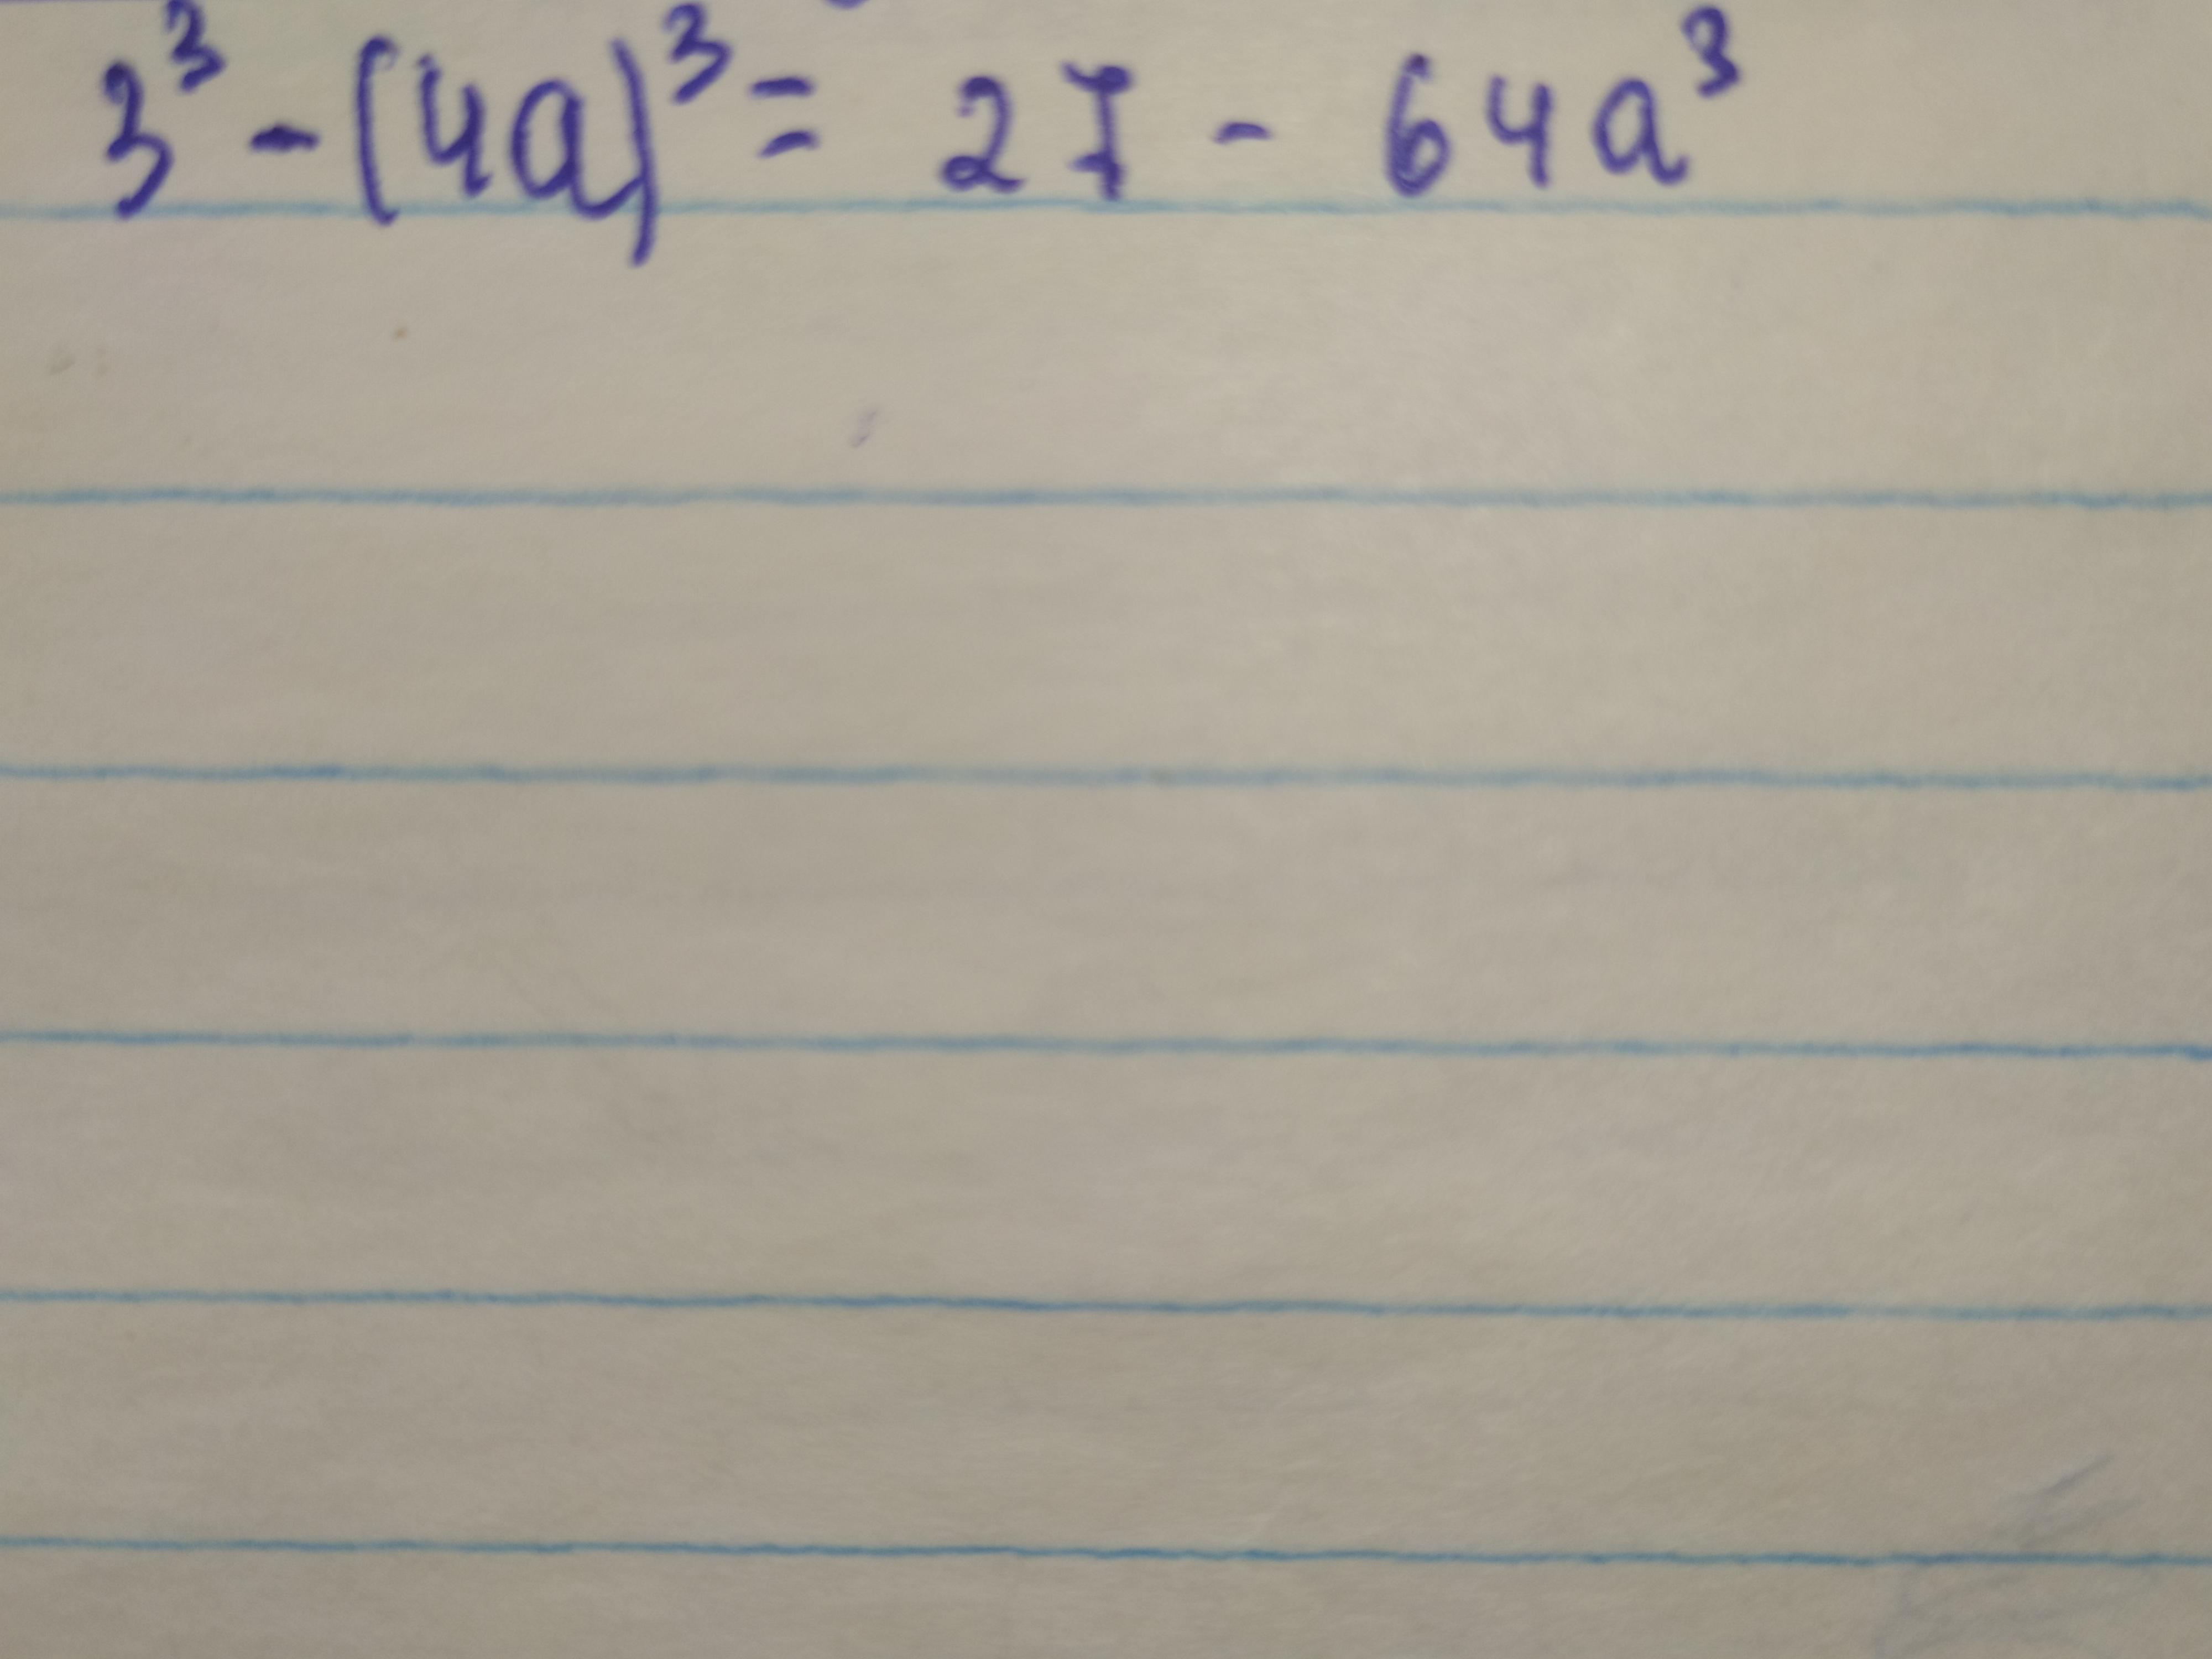 3³ - (4a)³ = 27 - 64a³